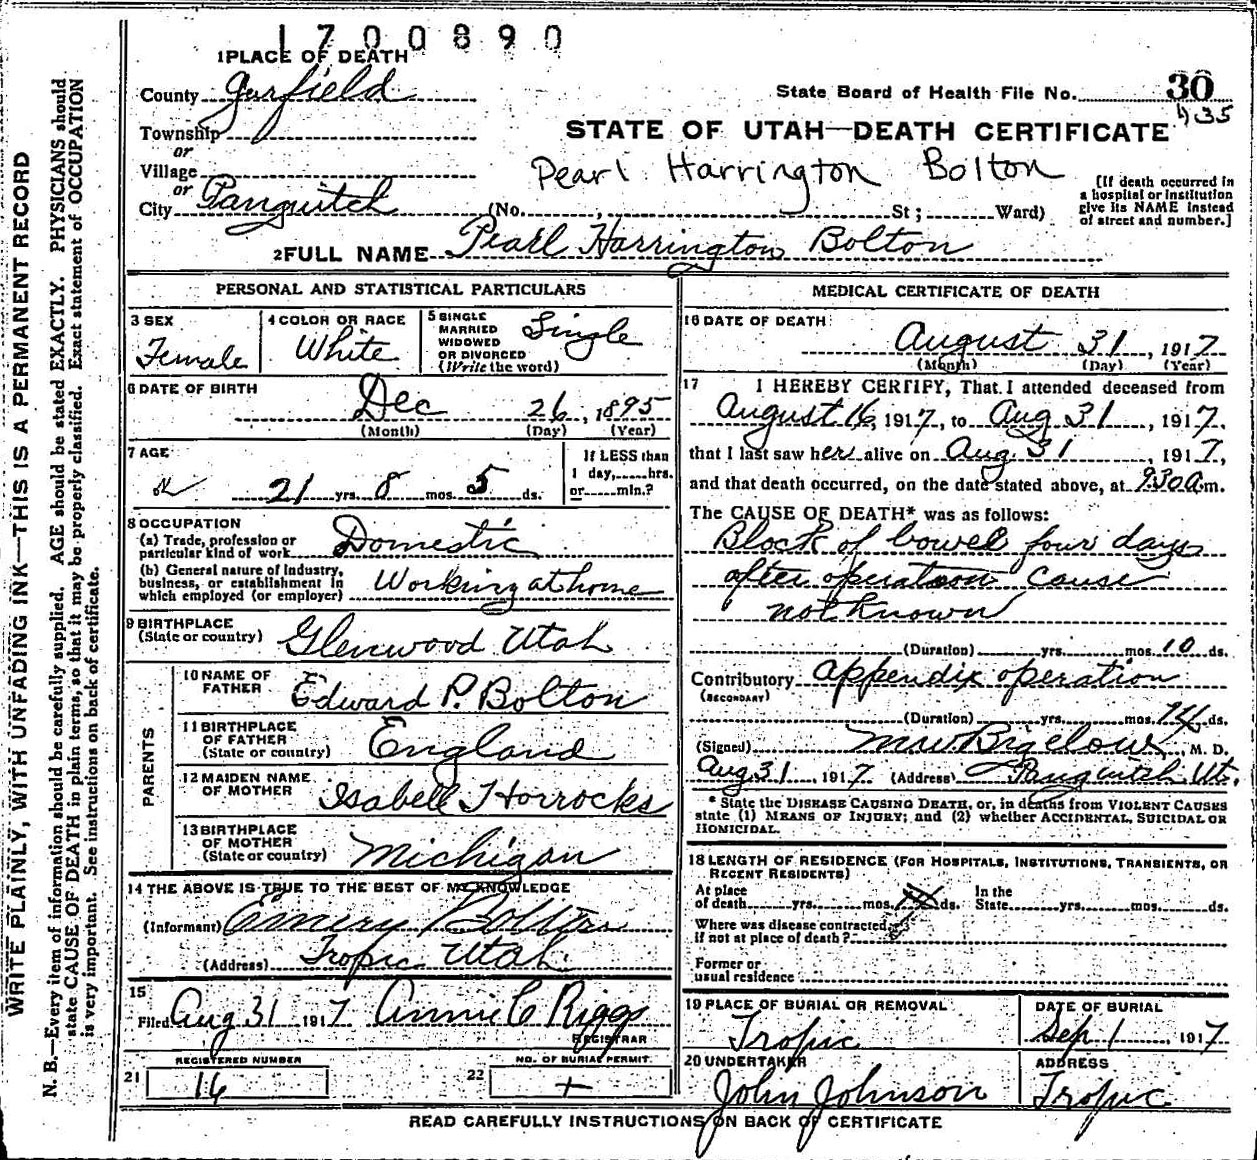 1700890
1 PLACE OF DEATH
County Garfield
State Board of Health File No. 30
435
Township
or
STATE OF UTAH—DEATH CERTIFICATE
Village
or
Pearl Harrington Bolton
City Panguitch (No. , St ; Ward)
[If death occurred in
a hospital or institution
give its NAME instead
of street and number.]
2 FULL NAME Pearl Harrington Bolton
PERSONAL AND STATISTICAL PARTICULARS
3 SEX
Female
4 COLOR OR RACE
White
5 SINGLE
MARRIED
WIDOWED
OR DIVORCED
(Write the word)
Single
6 DATE OF BIRTH
Dec 26, 1895
(Month) (Day) (Year)
7 AGE
21 yrs. 8 mos. 5 ds.
If LESS than
1 day, hrs.
or min.?
8 OCCUPATION
(a) Trade, profession or
particular kind of work Domestic
(b) General nature of industry,
business, or establishment in
which employed (or employer) Working at home
9 BIRTHPLACE
(State or country) Glenwood Utah
PARENTS
10 NAME OF
FATHER Edward P. Bolton
11 BIRTHPLACE
OF FATHER
(State or country) England
12 MAIDEN NAME
OF MOTHER Isabell Horrocks
13 BIRTHPLACE
OF MOTHER
(State or country) Michigan
14 THE ABOVE IS TRUE TO THE BEST OF MY KNOWLEDGE
(Informant) Emery Bolton
(Address) Tropic Utah
15
Filed Aug 31 1917 Annie C Riggs
REGISTRAR
REGISTERED NUMBER
21 16
NO. OF BURIAL PERMIT
22 +
MEDICAL CERTIFICATE OF DEATH
16 DATE OF DEATH
August 31, 1917
(Month) (Day) (Year)
17 I HEREBY CERTIFY, That I attended deceased from
August 16, 1917, to Aug 31, 1917.
that I last saw her alive on Aug. 31, 1917,
and that death occurred, on the date stated above, at 9:30 A.m.
The CAUSE OF DEATH* was as follows:
Block of bowel four days
after operation cause
not known
(Duration) yrs. mos. 10 ds.
Contributory appendix operation
(SECONDARY)
(Duration) yrs. mos. 14 ds.
(Signed) M W Bigelow, M. D.
Aug 31, 1917. (Address) Panguitch Ut.
* State the DISEASE CAUSING DEATH, or, in deaths from VIOLENT CAUSES
state (1) MEANS OF INJURY; and (2) whether ACCIDENTAL, SUICIDAL OR
HOMICIDAL.
18 LENGTH OF RESIDENCE (FOR HOSPITALS, INSTITUTIONS, TRANSIENTS, OR
RECENT RESIDENTS)
At place
of death yrs. mos. ds.
In the
State yrs. mos. ds.
Where was disease contracted,
if not at place of death?
Former or
usual residence
19 PLACE OF BURIAL OR REMOVAL
Tropic
DATE OF BURIAL
Sep 1, 1917
20 UNDERTAKER
John Johnson
ADDRESS
Tropic
READ CAREFULLY INSTRUCTIONS ON BACK OF CERTIFICATE
WRITE PLAINLY, WITH UNFADING INK—THIS IS A PERMANENT RECORD
N. B.—Every item of information should be carefully supplied. AGE should be stated EXACTLY. PHYSICIANS should
state CAUSE OF DEATH in plain terms, so that it may be properly classified. Exact statement of OCCUPATION
is very important. See instructions on back of certificate.